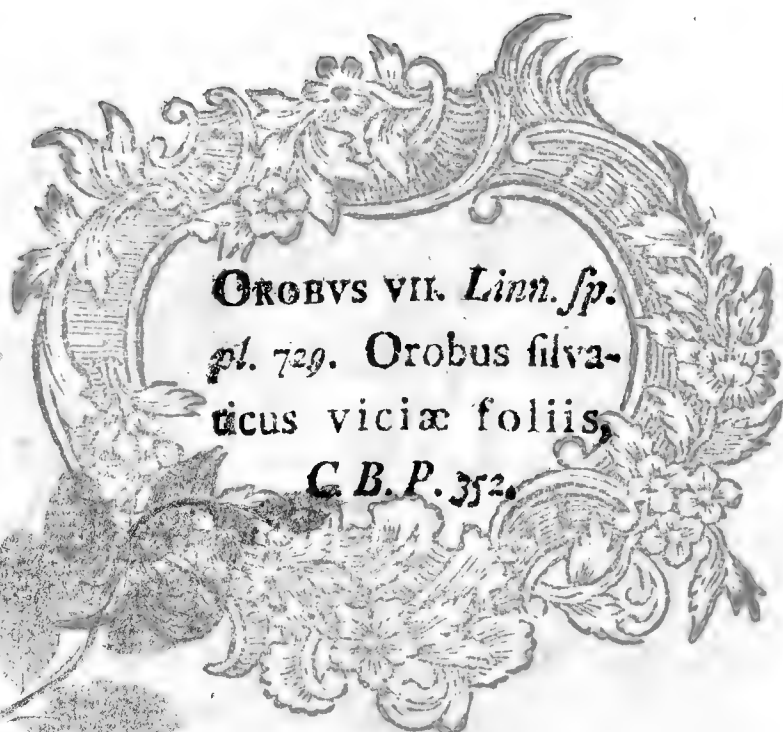 OROBVS VII. Linn. ſp.
pl. 729. Orobus ſilva-
ticus viciæ foliis,
C. B. P. 352.